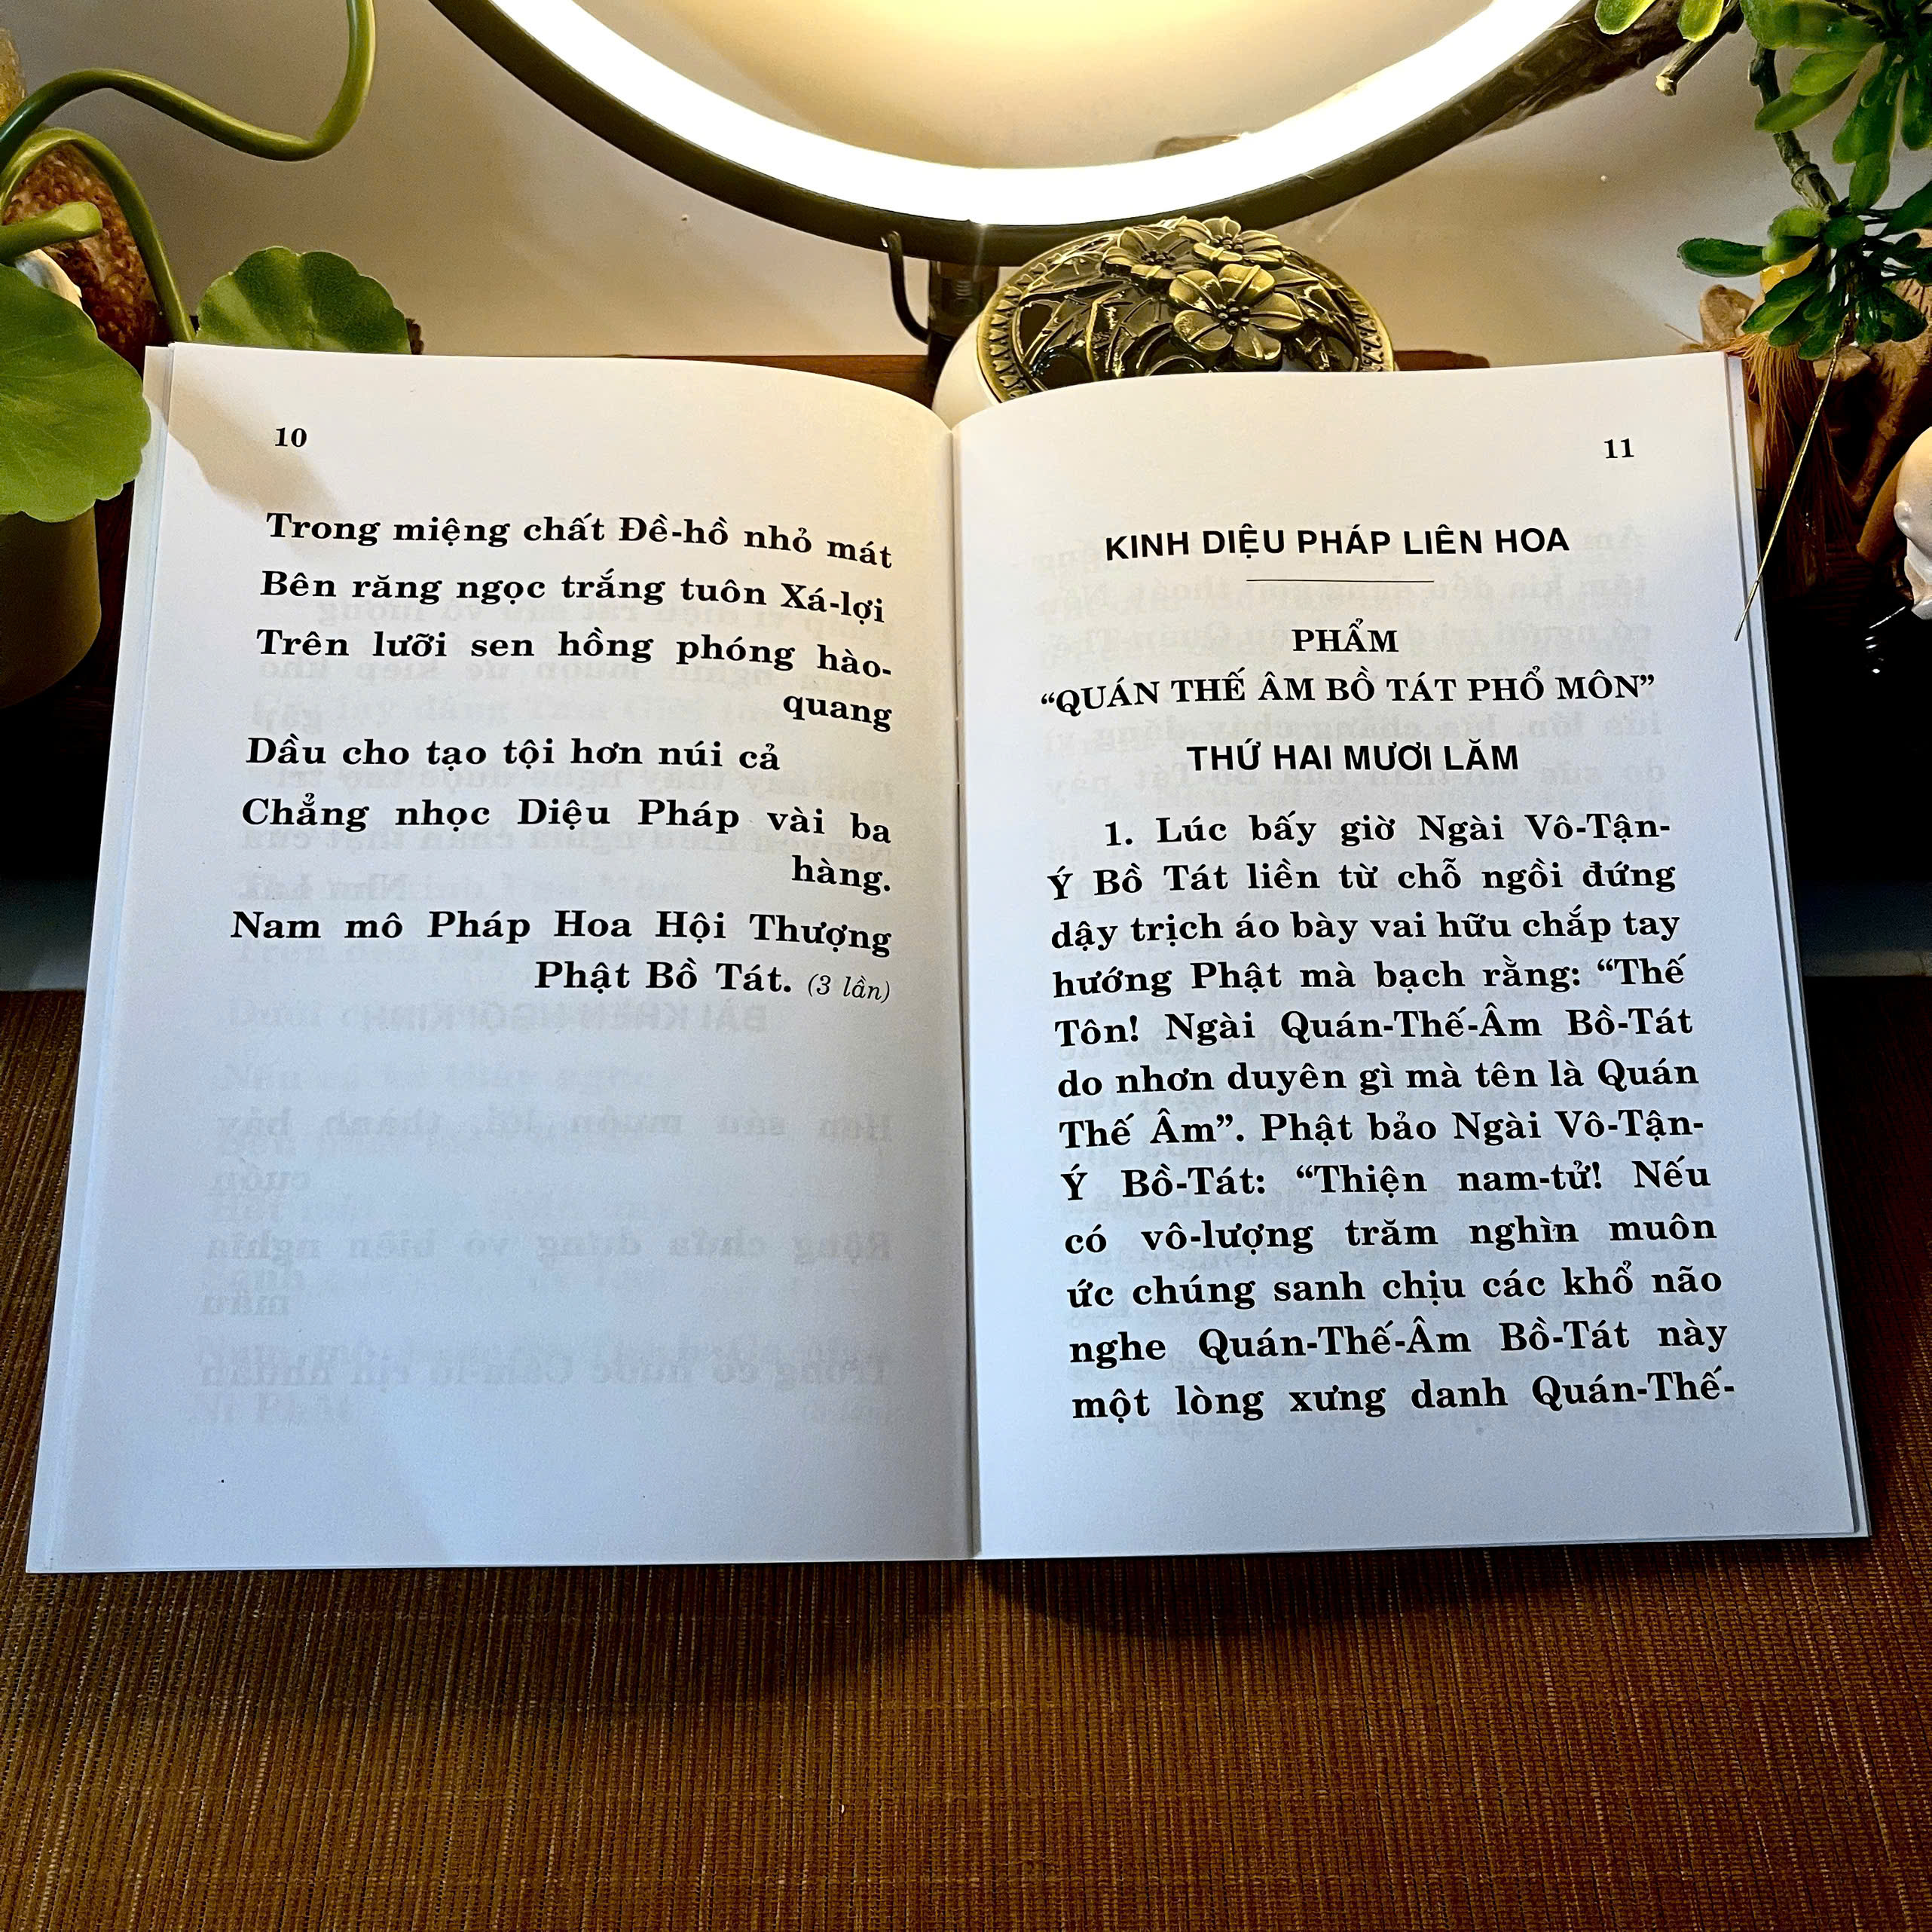 10
Trong miệng chất Đề-hồ nhỏ mát
Bên răng ngọc trắng tuôn Xá-lợi
Trên lưỡi sen hồng phóng hào-
quang
Dầu cho tạo tội hơn núi cả
Chẳng nhọc Diệu Pháp vài ba
hàng.
Nam mô Pháp Hoa Hội Thượng
Phật Bồ Tát. (3 lần)
11
KINH DIỆU PHÁP LIÊN HOA
PHẨM
“QUÁN THẾ ÂM BỒ TÁT PHỔ MÔN”
THỨ HAI MƯƠI LĂM
1. Lúc bấy giờ Ngài Vô-Tận-
Ý Bồ Tát liền từ chỗ ngồi đứng
dậy trịch áo bày vai hữu chắp tay
hướng Phật mà bạch rằng: “Thế
Tôn! Ngài Quán-Thế-Âm Bồ-Tát
do nhơn duyên gì mà tên là Quán
Thế Âm”. Phật bảo Ngài Vô-Tận-
Ý Bồ-Tát: “Thiện nam-tử! Nếu
có vô-lượng trăm nghìn muôn
ức chúng sanh chịu các khổ não
nghe Quán-Thế-Âm Bồ-Tát này
một lòng xưng danh Quán-Thế-